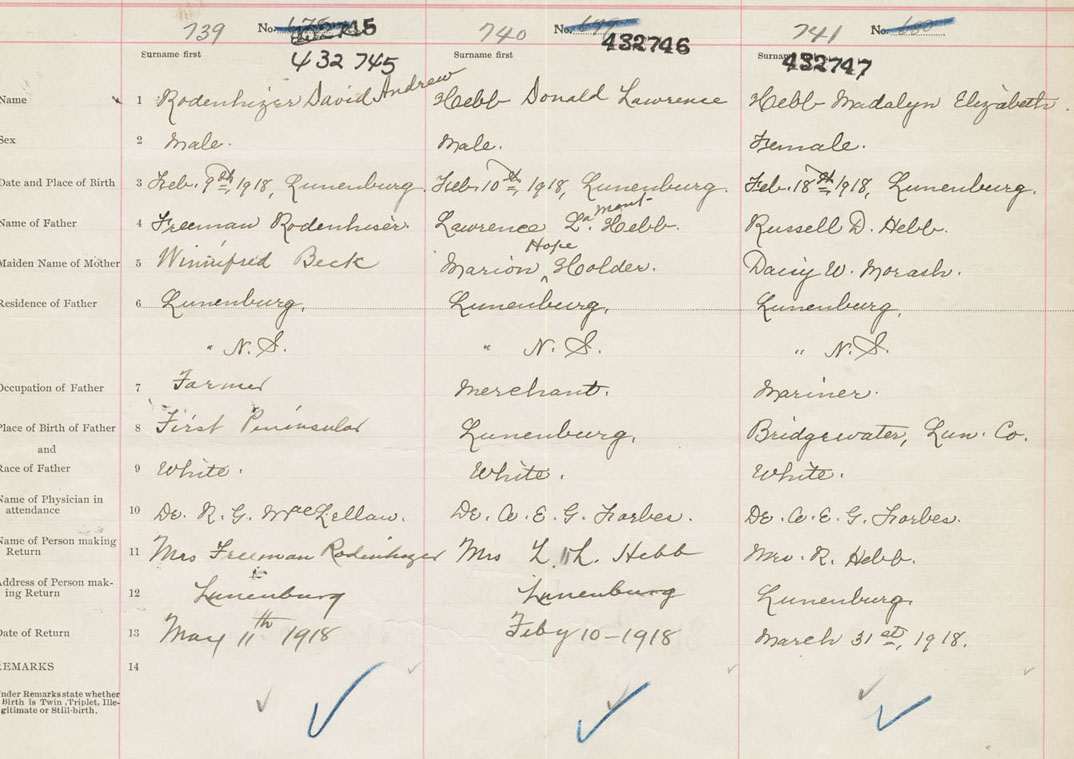 739 No. 432745
740 No.
741 No.
Surname first 432 745
Surname first 432746
432747
Name 1 Rodenhizer David Andrew
Hebb Donald Lawrence
Hebb Madalyn Elizabeth.
Sex 2 Male.
Male.
Female.
Date and Place of Birth 3 Feb. 9th, 1918, Lunenburg.
Feb. 10th, 1918, Lunenburg.
Feb. 18th, 1918, Lunenburg.
Name of Father 4 Freeman Rodenhiser.
Lawrence Hebb.
Russell D. Hebb.
Maiden Name of Mother 5 Winnifred Beck
Marion Hope Holder.
Daisy W. Morash.
Residence of Father 6 Lunenburg,
Lunenburg,
Lunenburg,
" N.S.
" N.S.
" N.S.
Occupation of Father 7 Farmer
Merchant.
Mariner.
Place of Birth of Father 8 First Peninsular
Lunenburg,
Bridgewater, Lun. Co.
and
Race of Father 9 White.
White.
White.
Name of Physician in
attendance 10 Dr. R. G. MacLellan.
Dr. C. E. G. Forbes.
Dr. C. E. G. Forbes.
Name of Person making
Return 11 Mrs Freeman Rodenhizer
Mrs L. L. Hebb
Mrs. R. Hebb.
Address of Person mak-
ing Return 12 Lunenburg
Lunenburg
Lunenburg.
Date of Return 13 May 11th 1918
Feby 10-1918
March 31st, 1918.
REMARKS 14
Under Remarks state whether
Birth is Twin, Triplet, Ille-
gitimate or Still-birth.